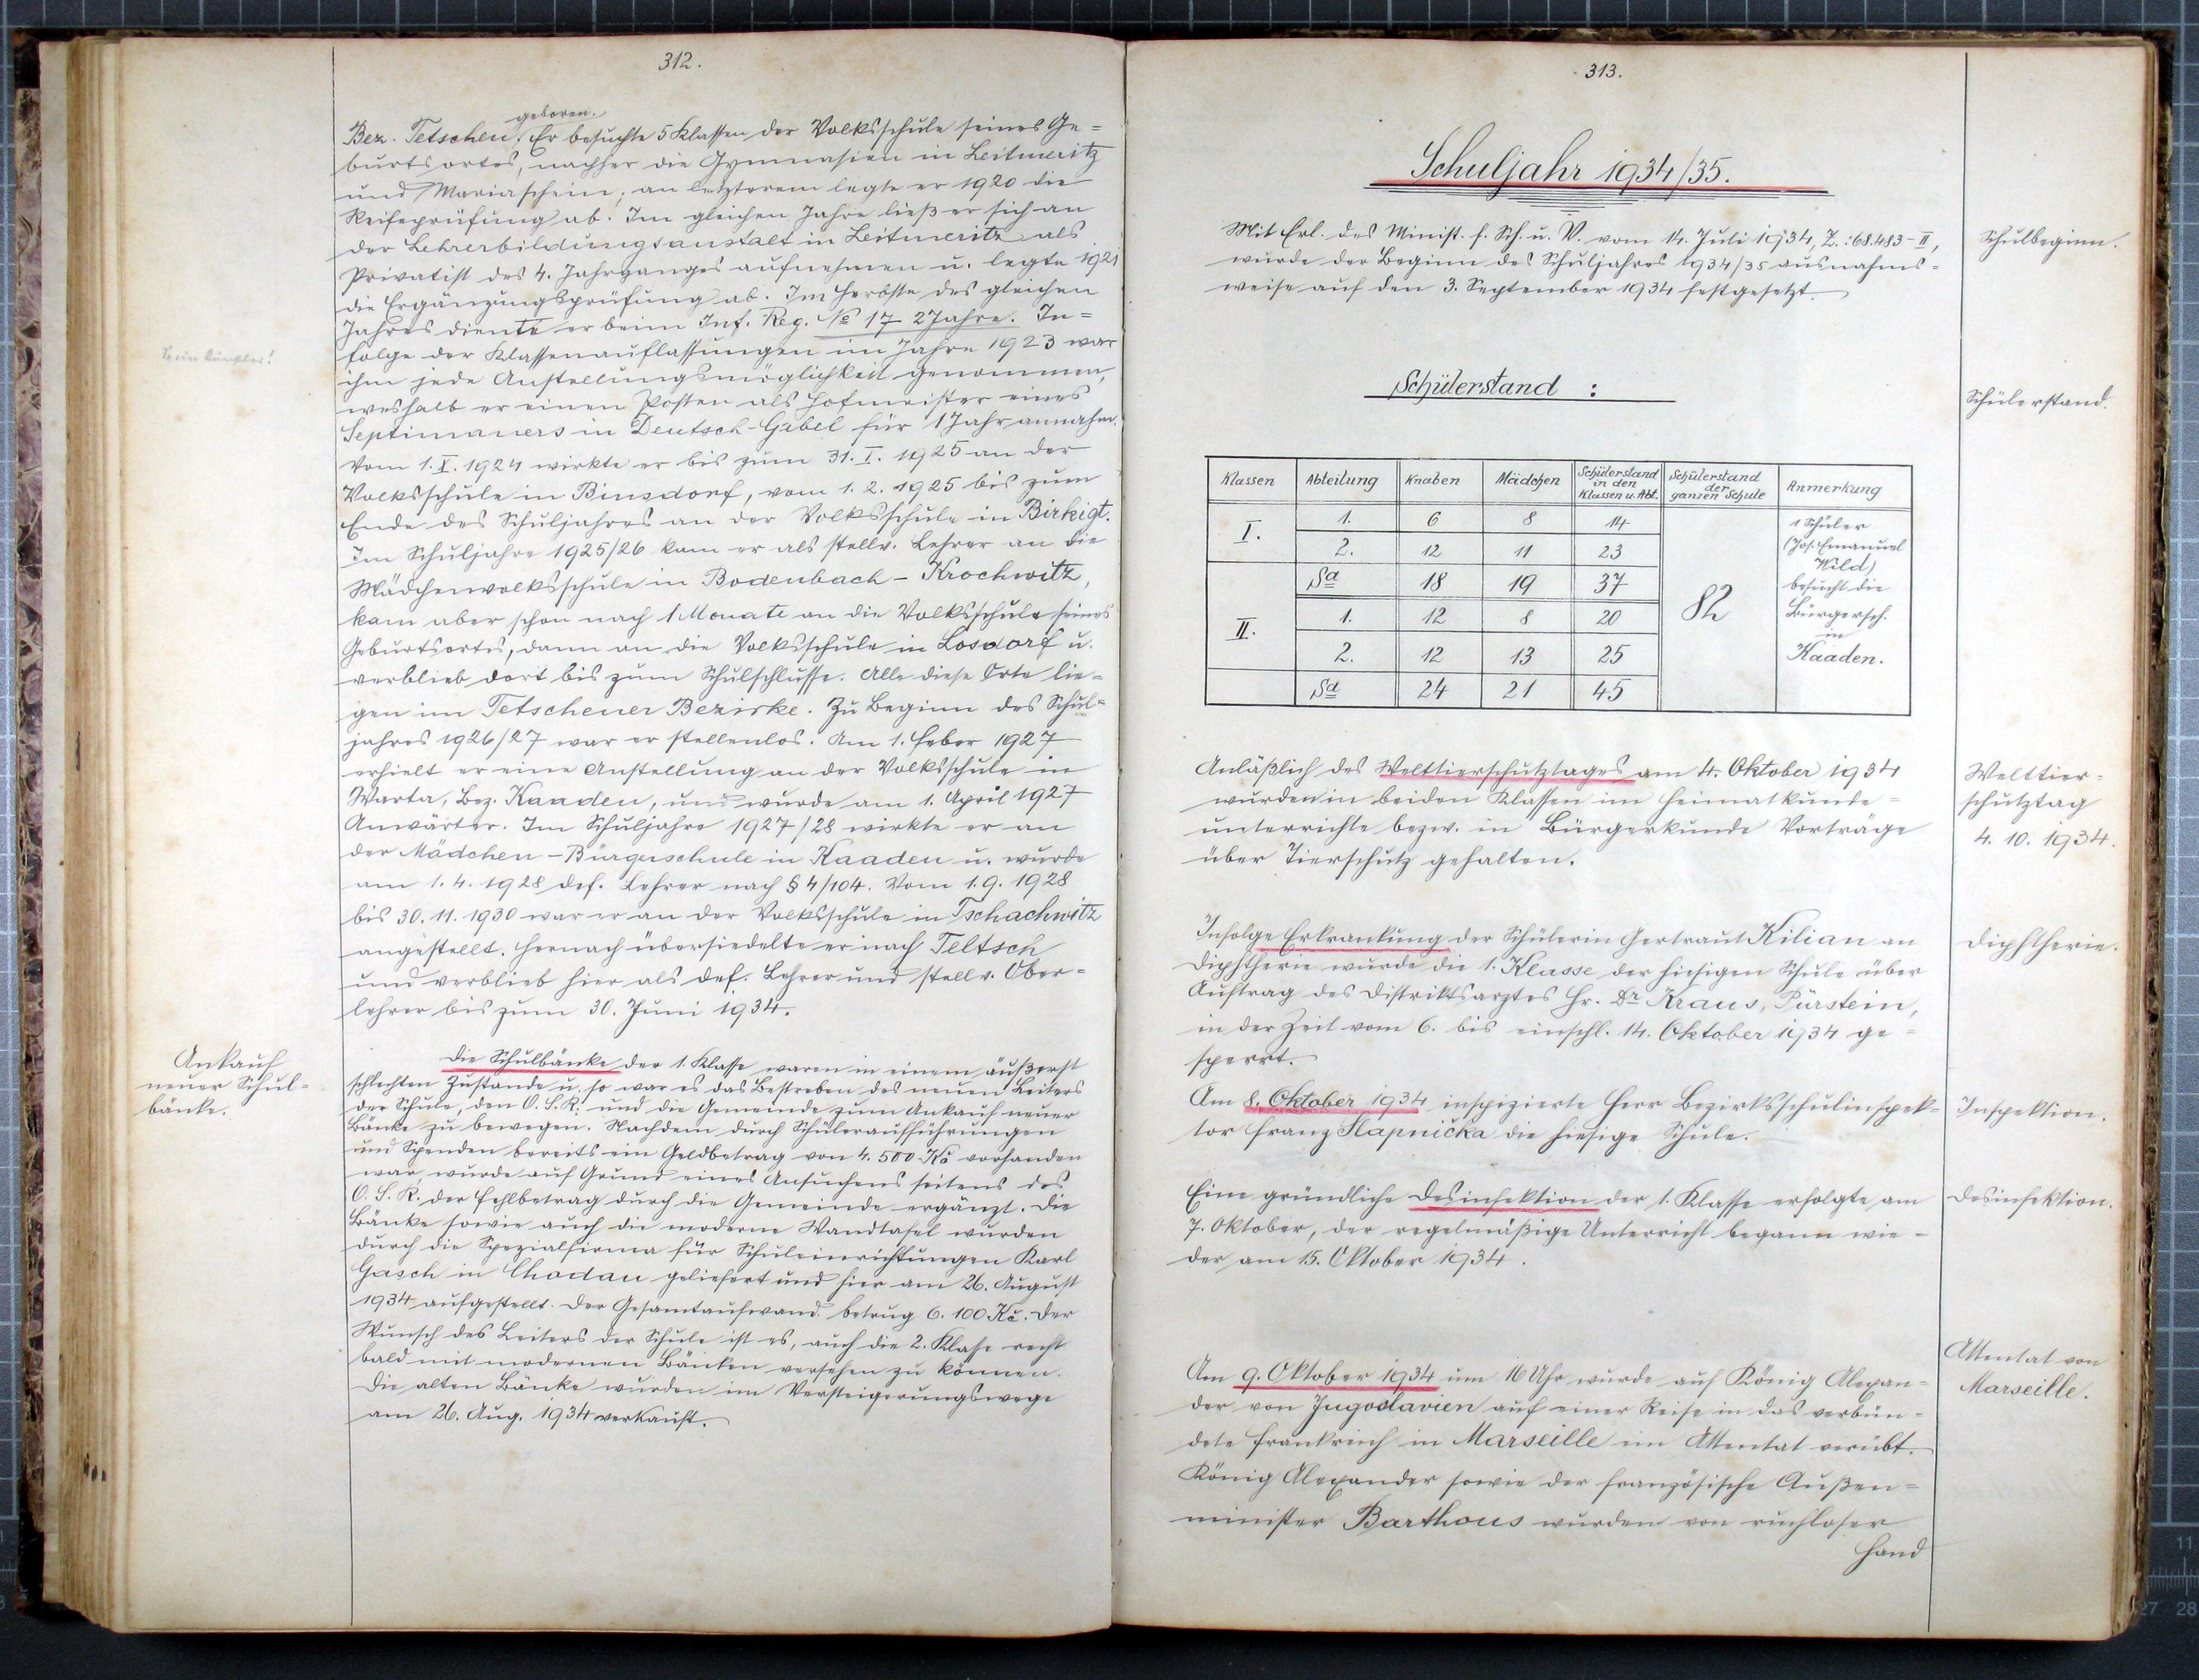 312.
geboren.
Bez. Tetschen, Er besuchte 5 Klassen der Volksschule seines Ge=
burtsortes, nachher die Gymnasien in Leitmeritz
und Mariaschein; an letzterem legte er 1920 die
Reifeprüfung ab. Im gleichen Jahre ließ er sich an
der Lehrerbildungsanstalt in Leitmeritz als
Privatist des 4. Jahrganges aufnehmen u. legte 1921
die Ergänzungsprüfung ab. Im Herbste des gleichen
Jahres diente er beim Inf. Reg. No 17 2 Jahre. In=
folge der Klassenauflassungen im Jahre 1923 war
ihm jede Anstellungsmöglichkeit genommen,
weshalb er einen Posten als Hofmeister eines
Septimaners in Deutsch-Gabel für 1 Jahr annahm.
Vom 1. X. 1924 wirkte er bis zum 31. I. 1925 an der
Volksschule in Binsdorf, vom 1. 2. 1925 bis zum
Ende des Schuljahres an der Volksschule in Birkigt.
Im Schuljahre 1925/26 kam er als stellv. Lehrer an die
Mädchenvolksschule in Bodenbach - Krochwitz,
kam aber schon nach 1 Monate an die Volksschule seines
Geburtsortes, dann an die Volksschule in Losdorf u.
verblieb dort bis zum Schulschlusse. Alle diese Orte lie=
gen im Tetschener Bezirke. Zu Beginn des Schul=
jahres 1926/27 war er stellenlos. Am 1. Feber 1927
erhielt er eine Anstellung an der Volksschule in
Warta, Bez. Kaaden, und wurde am 1. April 1927
Anwärter. Im Schuljahre 1927/28 wirkte er an
der Mädchen-Bürgerschule in Kaaden u. wurde
am 1. 4. 1928 def. Lehrer nach § 4/104. Vom 1. 9. 1928
bis 30. 11. 1930 war er an der Volksschule in Tschachwitz
angestellt. Hernach übersiedelte er nach Teltsch
und verblieb hier als def. Lehrer und stellv. Ober=
lehrer bis zum 30. Juni 1934.
Ankauf
neuer Schul=
bänke.
Die Schulbänke der 1. Klasse waren in einem äußerst
schlechten Zustande u. so war es das Bestreben des neuen Leiters
der Schule, den O. S. R. und die Gemeinde zum Ankauf neuer
Bänke zu bewegen. Nachdem durch Schüleraufführungen
und Spenden bereits ein Geldbetrag von 4.500 Kč vorhanden
war, wurde auf Grund eines Ansuchens seitens des
O. S. R. der Fehlbetrag durch die Gemeinde ergänzt. Die
Bänke sowie auch die moderne Wandtafel wurden
durch die Spezialfirma für Schuleinrichtungen Karl
Gasch in Chodau geliefert und hier am 26. August
1934 aufgestellt. Der Gesamtaufwand betrug 6.100 Kč. Der
Wunsch des Leiters der Schule ist es, auch die 2. Klasse recht
bald mit modernen Bänken versehen zu können.
Die alten Bänke wurden im Versteigerungswege
am 26. Aug. 1934 verkauft.
313.
Schuljahr 1934/35.
Mit Erl. des Minist. f. Sch. u. V. vom 14. Juli 1934, Z.: 68.483-II,
wurde der Beginn des Schuljahres 1934/35 ausnahms=
weise auf den 3. September 1934 festgesetzt.
Schulbeginn.
Schülerstand :
Schülerstand.
Klassen Abteilung Knaben Mädchen Schülerstand in den Klassen u. Abt. Schülerstand der ganzen Schule Anmerkung
I. 1. 6 8 14
2. 12 11 23
Sa 18 19 37
II. 1. 12 8 20
2. 12 13 25
Sa 24 21 45
82
1 Schüler
(Jos. Emanuel
Wild)
besucht die
Bürgersch.
in
Kaaden.
Anläßlich des Welttierschutztages am 4. Oktober 1934
wurden in beiden Klassen im Heimatkunde=
unterrichte bezw. in Bürgerkunde Vorträge
über Tierschutz gehalten.
Welttier=
schutztag
4. 10. 1934.
Infolge Erkrankung der Schülerin Gertraut Kilian an
Diphtherie wurde die 1. Klasse der hiesigen Schule über
Auftrag des Distriktsarztes Hr. Dr Kraus, Pürstein,
in der Zeit vom 6. bis einschl. 14. Oktober 1934 ge=
sperrt.
Diphtherie.
Am 8. Oktober 1934 inspizierte Herr Bezirksschulinspek=
tor Franz Slapnička die hiesige Schule.
Inspektion.
Eine gründliche Desinfektion der 1. Klasse erfolgte am
7. Oktober, der regelmäßige Unterricht begann wie=
der am 15. Oktober 1934.
Desinfektion.
Am 9. Oktober 1934 um 16 Uhr wurde auf König Alexan=
der von Jugoslavien auf einer Reise in das verbün=
dete Frankreich in Marseille ein Attentat verübt.
König Alexander sowie der französische Außen=
minister Barthous wurden von ruchloser
Hand
Attentat von
Marseille.
11
27 28